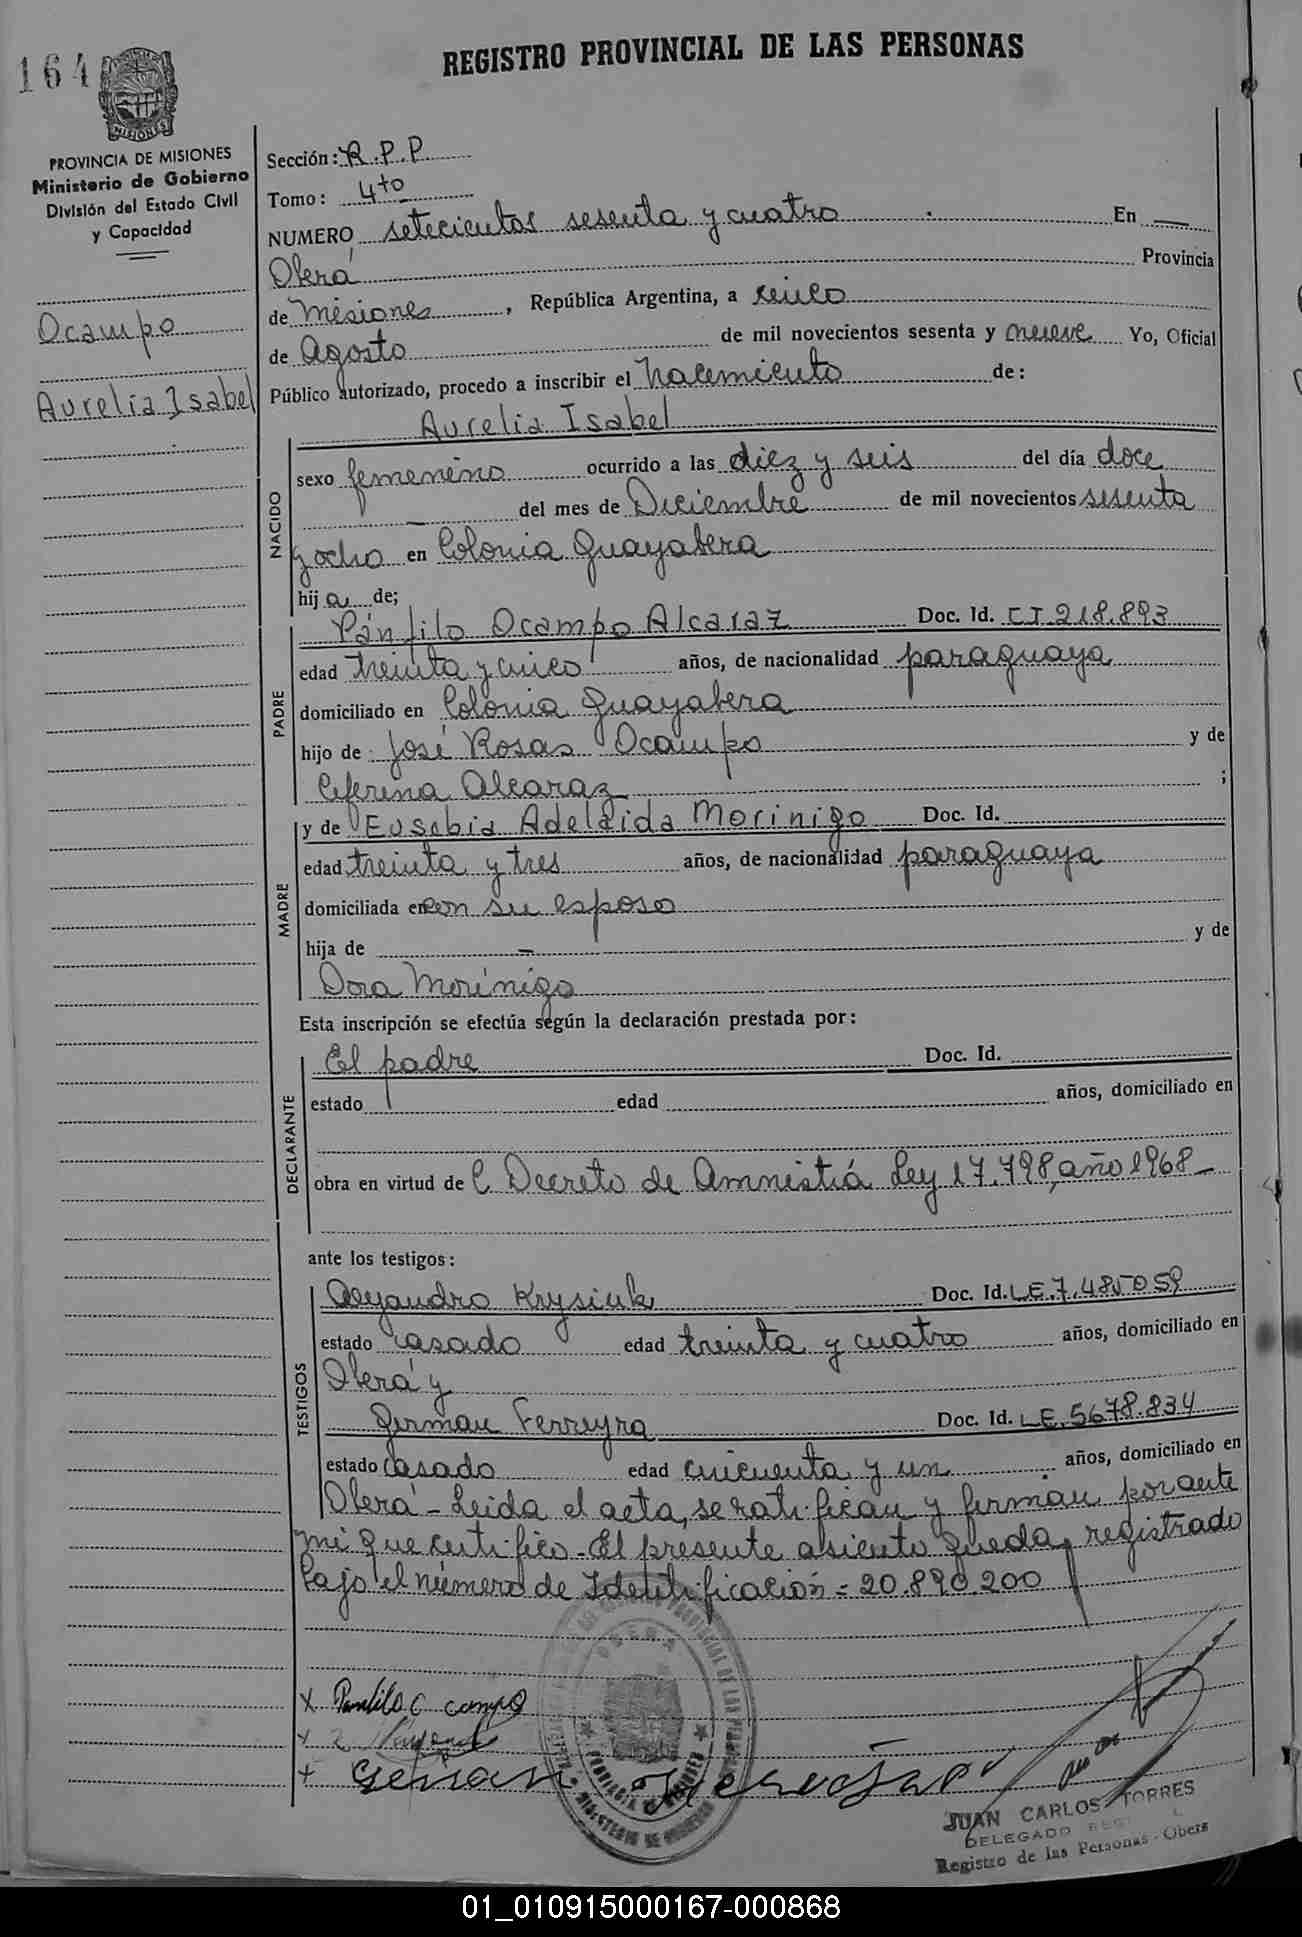 164
REGISTRO PROVINCIAL DE LAS PERSONAS
MISIONES
PROVINCIA DE MISIONES
Ministerio de Gobierno
División del Estado Civil
y Capacidad
Ocampo
Aurelia Isabel
Sección: R.P.P.
Tomo: 4to
NUMERO setecientos sesenta y cuatro En
Oberá Provincia
de Misiones, República Argentina, a cinco
de Agosto de mil novecientos sesenta y nueve Yo, Oficial
Público autorizado, procedo a inscribir el nacimiento de:
Aurelia Isabel
NACIDO
sexo femenino ocurrido a las diez y seis del día doce
del mes de Diciembre de mil novecientos sesenta
y ocho en Colonia Guayabera
hija de;
PADRE
Pánfilo Ocampo Alcaraz Doc. Id. CI 218.893
edad treinta y cinco años, de nacionalidad paraguaya
domiciliado en Colonia Guayabera
hijo de José Rosas Ocampo y de
Ceferina Alcaraz ;
MADRE
y de Eusebia Adelaida Morinigo Doc. Id.
edad treinta y tres años, de nacionalidad paraguaya
domiciliada en con su esposo
hija de — y de
Dora Morinigo
Esta inscripción se efectúa según la declaración prestada por:
DECLARANTE
El padre Doc. Id.
estado edad años, domiciliado en
obra en virtud de l Decreto de Amnistiá Ley 17.798, año 1968-
ante los testigos:
TESTIGOS
Alejandro Krysiuk Doc. Id. LE.7.485059
estado casado edad treinta y cuatro años, domiciliado en
Oberá y
German Ferreyra Doc. Id. LE.5678.834
estado casado edad cincuenta y un años, domiciliado en
Oberá - Leida el acta, se ratifican y firman por ante
mi que certifico - El presente asiento queda registrado
bajo el número de Identificación = 20.890.200
x Panfilo O campo
x 2
+ German
JUAN CARLOS TORRES
DELEGADO
Registro de las Personas - Obera
01_010915000167-000868